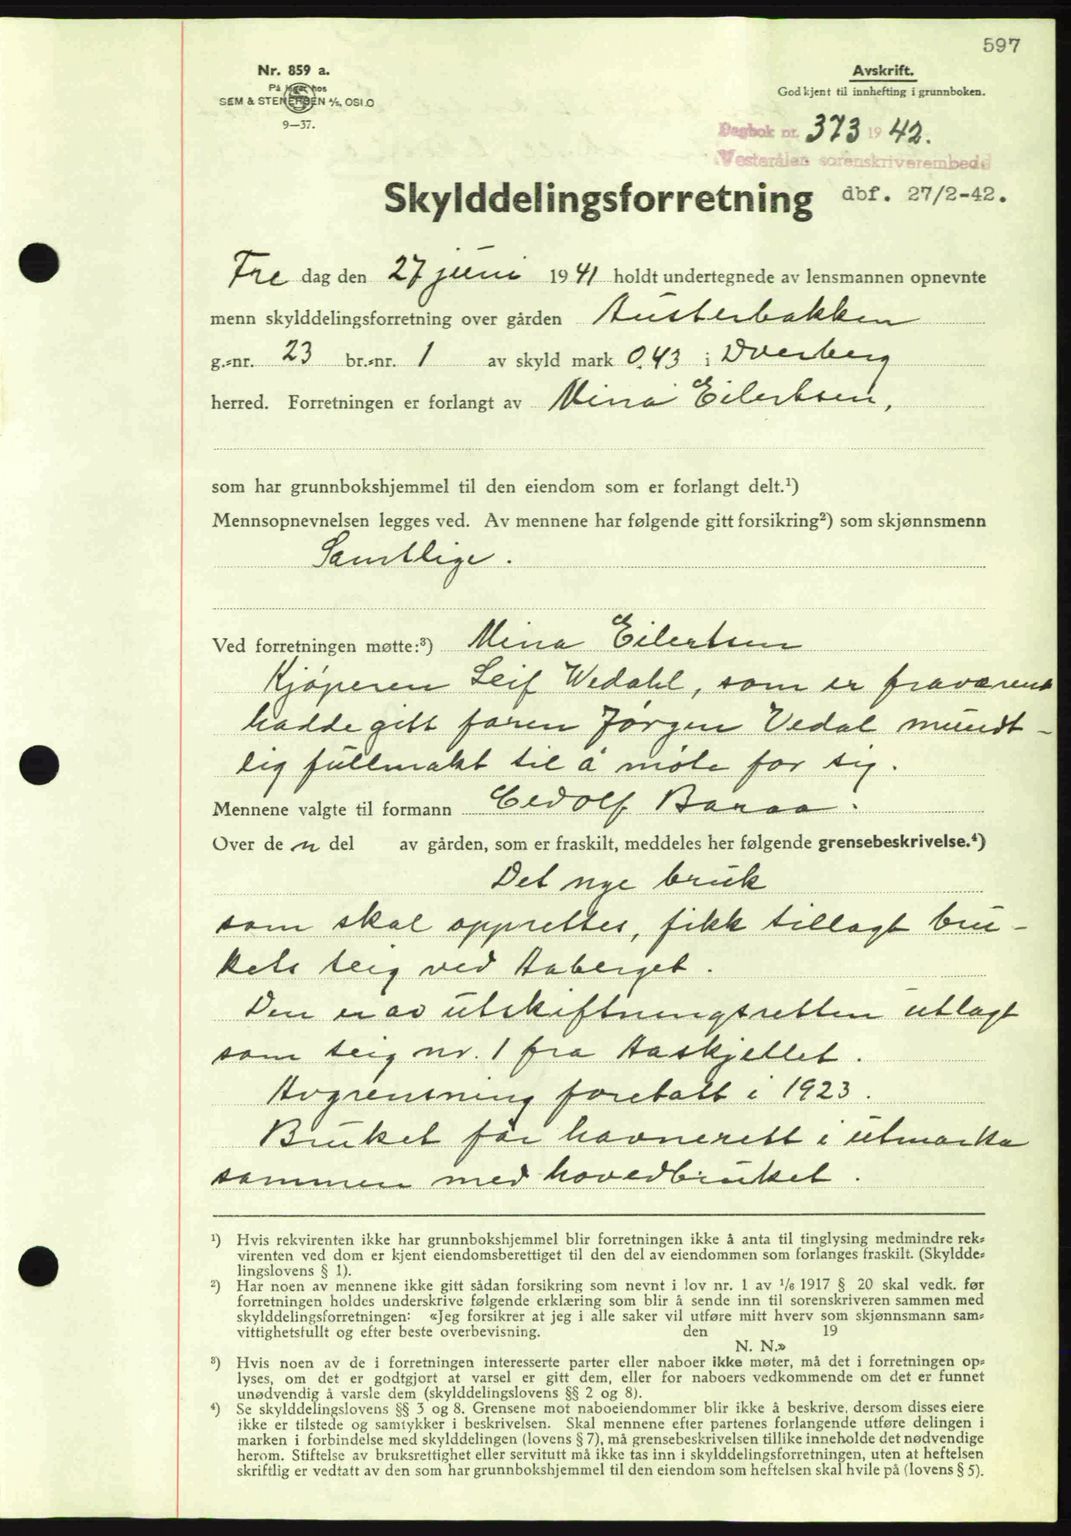 597
Nr. 859 a.
På lager hos
SEM & STENERSEN A/S, OSLO
9—37.
Avskrift.
Godkjent til innhefting i grunnboken.
Dagbok nr. 373 19 42.
Vesterålen sorenskriverembede
Skylddelingsforretning dbf. 27/2-42.
Fre dag den 27 juni 1941 holdt undertegnede av lensmannen opnevnte
menn skylddelingsforretning over gården Austerbakken
g.-nr. 23 br.-nr. 1 av skyld mark 0.43 i Dverberg
herred. Forretningen er forlangt av Mina Eilertsen,
som har grunnbokshjemmel til den eiendom som er forlangt delt.¹)
Mennsopnevnelsen legges ved. Av mennene har følgende gitt forsikring²) som skjønnsmenn
Samtlige.
Ved forretningen møtte:³) Mina Eilertsen
Kjøperen Leif Wedahl, som er fraværende
hadde gitt faren Jørgen Vedal mundt-
lig fullmakt til å møte for sig.
Mennene valgte til formann Cedolf Baraa.
Over de n del av gården, som er fraskilt, meddeles her følgende grensebeskrivelse.⁴)
Det nye bruk
som skal opprettes, fikk tillagt bru-
kets teig ved Aaberget.
Den er av utskiftningsretten utlagt
som teig nr. 1 fra Aaskjellet.
Avgrensning foretatt i 1923.
Bruket får havnerett i utmarka
sammen med hovedbruket.
¹) Hvis rekvirenten ikke har grunnbokshjemmel blir forretningen ikke å anta til tinglysing medmindre rek-
virenten ved dom er kjent eiendomsberettiget til den del av eiendommen som forlanges fraskilt. (Skyldde-
lingslovens § 1).
²) Har noen av mennene ikke gitt sådan forsikring som nevnt i lov nr. 1 av 1/6 1917 § 20 skal vedk. før
forretningen holdes underskrive følgende erklæring som blir å sende inn til sorenskriveren sammen med
skylddelingsforretningen: «Jeg forsikrer at jeg i alle saker vil utføre mitt hverv som skjønnsmann sam-
vittighetsfullt og efter beste overbevisning. den 19
N. N.»
³) Hvis noen av de i forretningen interesserte parter eller naboer ikke møter, må det i forretningen op-
lyses, om det er godtgjort at varsel er gitt dem, eller for naboers vedkommende om det er funnet
unødvendig å varsle dem (skylddelingslovens §§ 2 og 8).
⁴) Se skylddelingslovens §§ 3 og 8. Grensene mot naboeiendommer blir ikke å beskrive, dersom disses eiere
ikke er tilstede og samtykker i beskrivelsen. Skal mennene efter partenes forlangende utføre delingen i
marken i forbindelse med skylddelingen (lovens § 7), må grensebeskrivelsen tillike inneholde det nødvendige
herom. Stiftelse av bruksrettighet eller servitutt må ikke tas inn i skylddelingsforretningen, uten at heftelsen
skriftlig er vedtatt av den som har grunnbokshjemmel til den eiendom som heftelsen skal hvile på (lovens § 5).